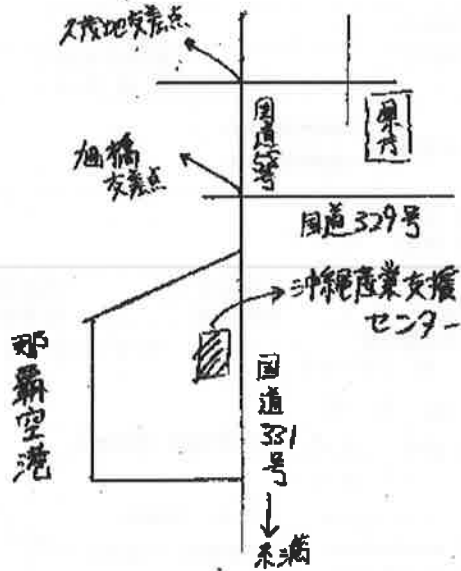 久茂地交差点
国道58号
県庁
旭橋
交差点
国道329号
沖縄産業支援
センター
那覇空港
国道331号
糸満